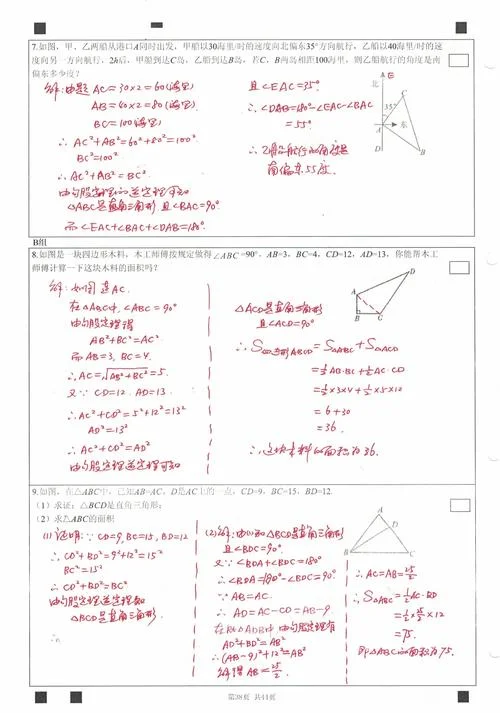 7.如图，甲、乙两船从港口A同时出发，甲船以30海里/时的速度向北偏东35°方向航行，乙船以40海里/时的速
度向另一方向航行，2h后，甲船到达C岛，乙船到达B岛，若C、B两岛相距100海里，则乙船航行的角度是南
偏东多少度？
解：由题 AC=30×2=60(海里)
AB=40×2=80(海里)
BC=100(海里)
∴ AC²+AB²=60²+80²=100²
BC²=100²
∴ AC²+AB²=BC²
由勾股定理的逆定理可知
△ABC是直角三角形 且∠BAC=90°
而∠EAC+∠BAC+∠DAB=180°
且∠EAC=35°
∴ ∠DAB=180°-∠EAC-∠BAC
=55°
∴ 乙船航行的角度是
南偏东55度.
北
E
C
35°
A
东
D
B
B组
8.如图是一块四边形木料，木工师傅按规定做得∠ABC=90°，AB=3，BC=4，CD=12，AD=13，你能帮木工
师傅计算一下这块木料的面积吗？
解：如图 连AC.
在△ABC中，∠ABC=90°
由勾股定理得
AB²+BC²=AC²
而AB=3, BC=4.
∴AC=√AB²+BC²=5.
又∵ CD=12. AD=13.
∴AC²+CD²=5²+12²=13²
AD²=13²
∴ AC²+CD²=AD²
由勾股定理逆定理可知
△ACD是直角三角形
且∠ACD=90°
∴ S四边形ABCD=S△ABC+S△ACD
=½AB·BC+½AC·CD
=½×3×4+½×5×12
=6+30
=36.
∴这块木料的面积为36.
D
A
B
C
9.如图，在△ABC中，已知AB=AC，D是AC上的一点，CD=9，BC=15，BD=12.
（1）求证：△BCD是直角三角形；
（2）求△ABC的面积
(1) 证明：∵CD=9, BC=15, BD=12
∴CD²+BD²=9²+12²=15²
BC²=15²
∴ CD²+BD²=BC²
由勾股定理逆定理知
△BCD是直角三角形.
∴
(2)解：由(1)知△BCD是直角三角形
且∠BDC=90°
又∵∠BDA+∠BDC=180°
∴∠BDA=180°-∠BDC=90°
∵AB=AC.
∴ AD=AC-CD=AB-9
在Rt△ADB中由勾股定理有
AD²+BD²=AB²
∴(AB-9)²+12²=AB²
解得AB=25/2.
∴AC=AB=25/2
∴S△ABC=½AC·BD
=½×25/2×12
=75.
即△ABC的面积为75.
A
D
B
C
第38页 共41页